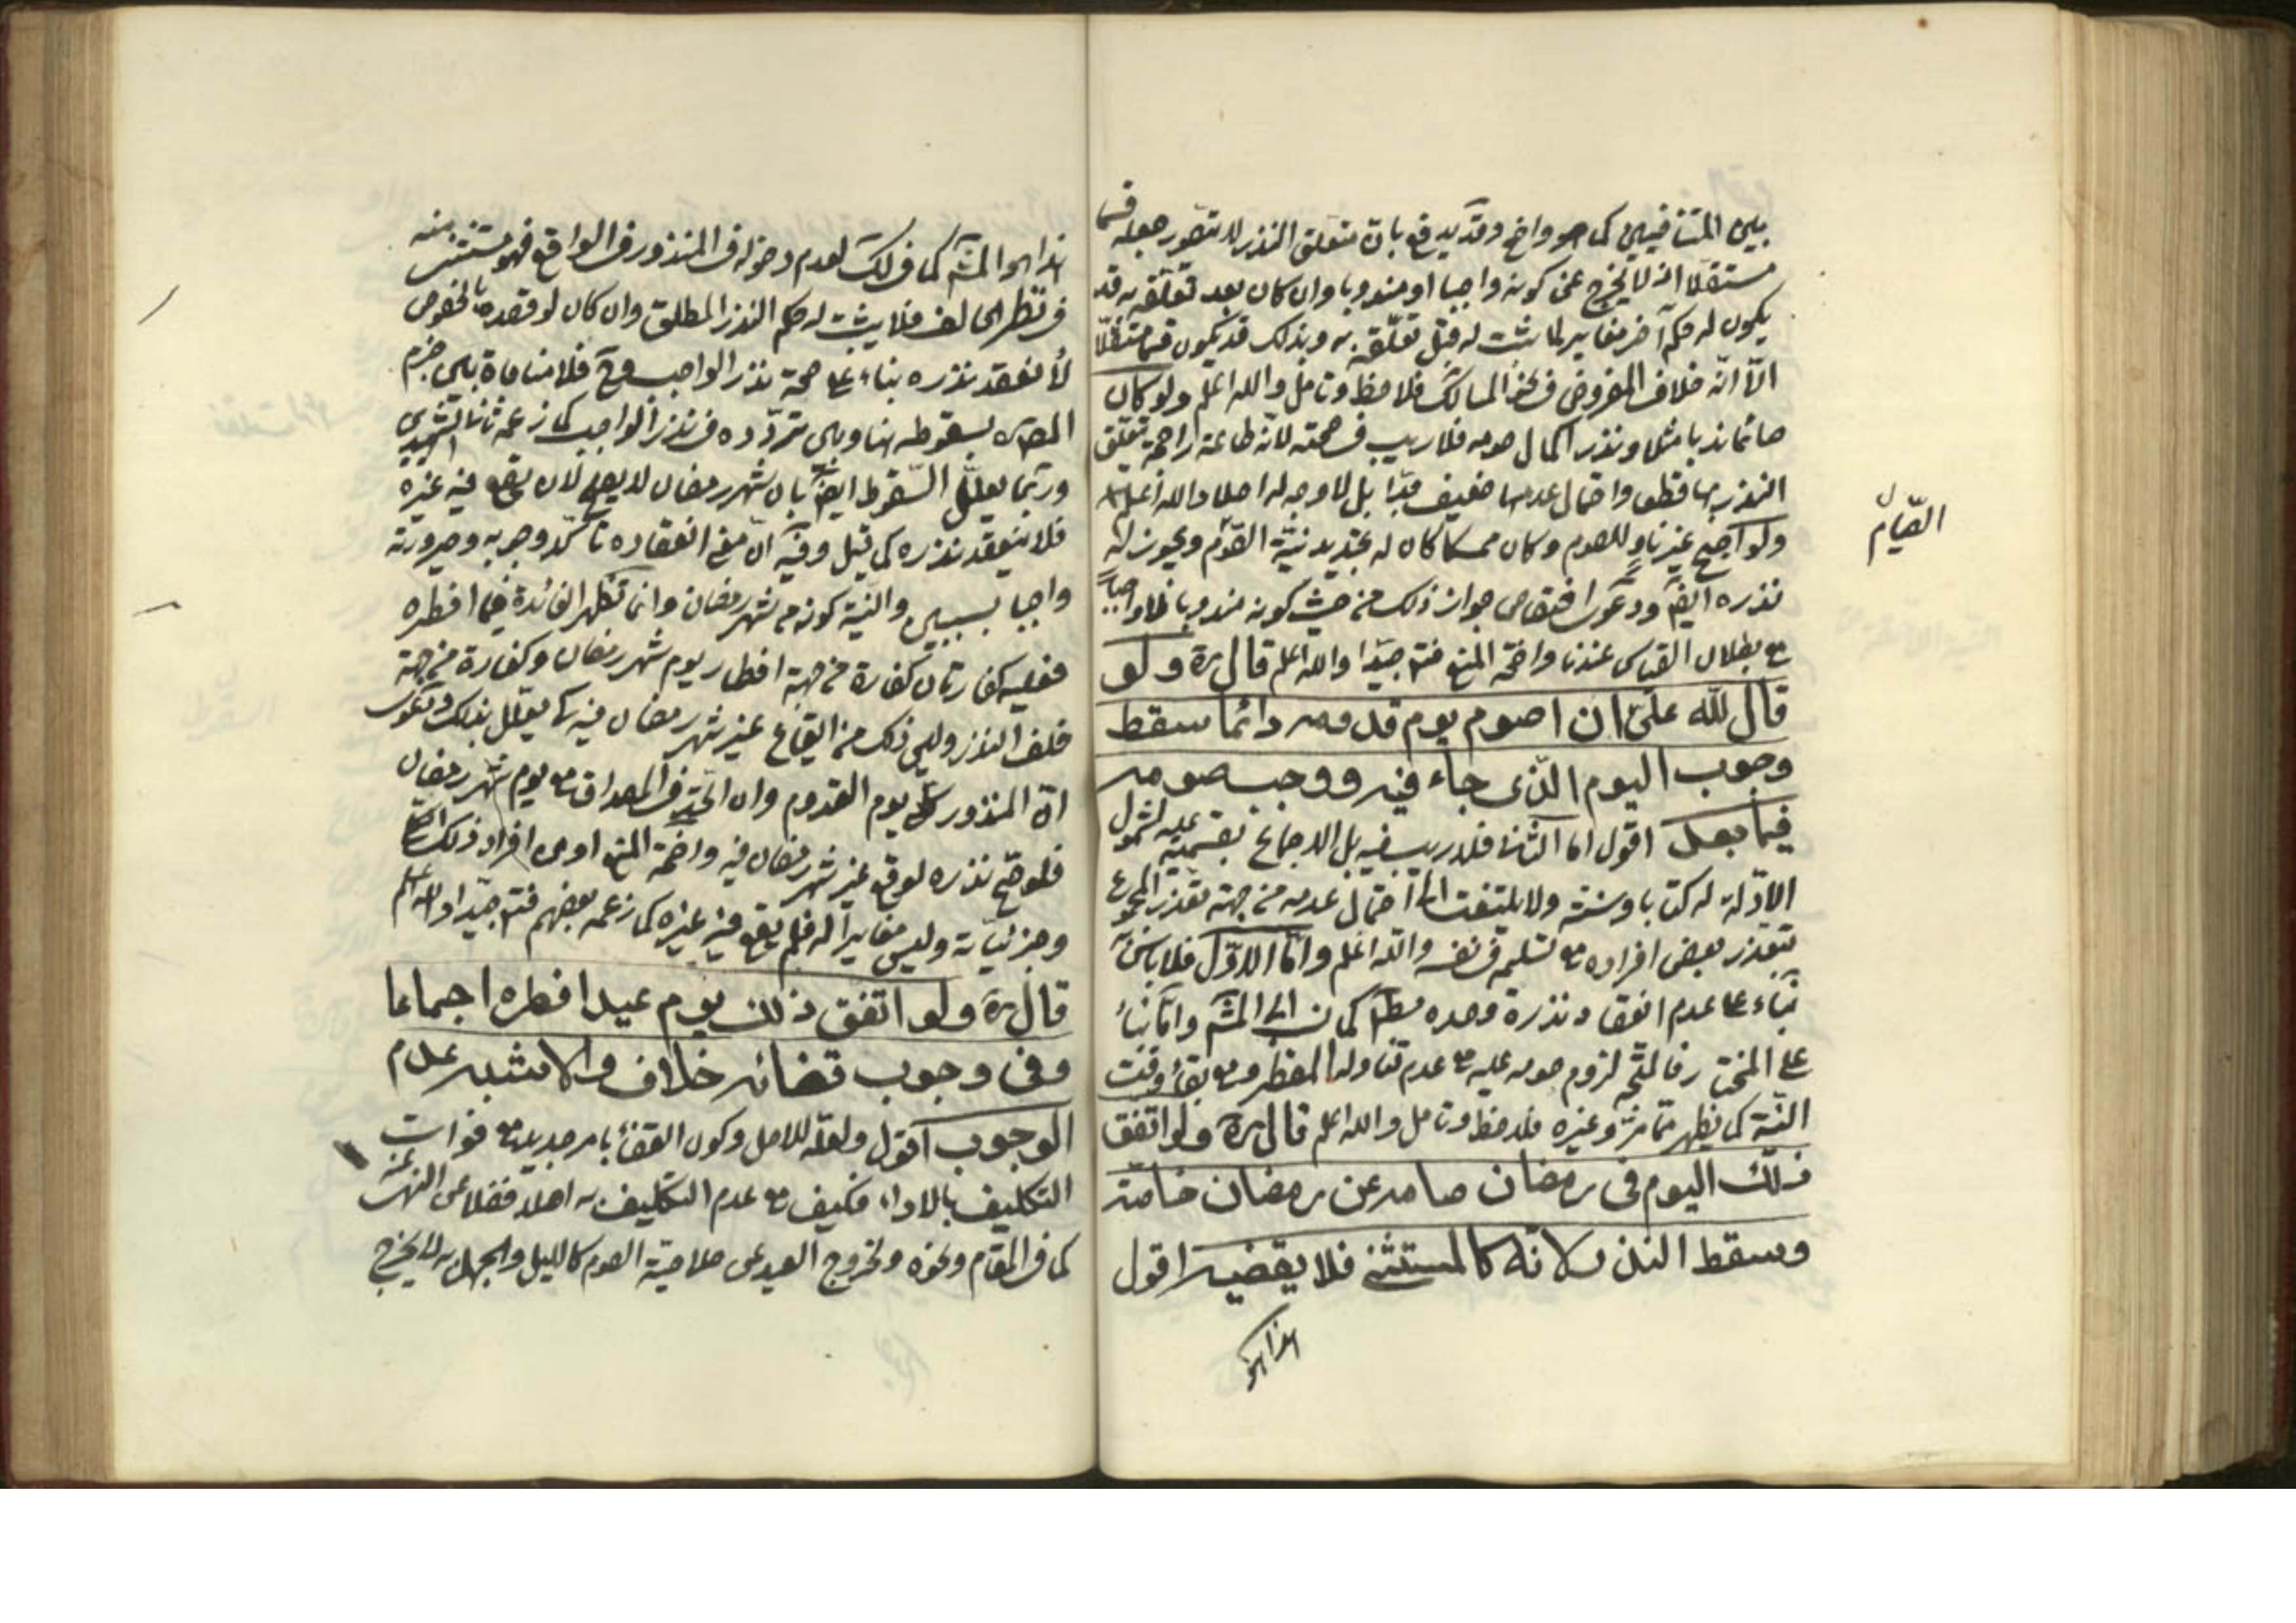 بين المتنافيين كما هو واضح وقد يدفع بان متعلق النذر لا يتصور جعله قسما
مستقلا اذ لا يخرج عن كونه واجبا او مندوبا وان كان بعد تعلقه به قد
يكون له حكم آخر مغاير لما ثبت له قبل تعلقه به وبذلك قد يكون قسما مستقلا
الا انه خلاف المفروض في المسالك فلاحظ وتامل والله اعلم ولو كان
صائما ندبا مثلا ونذر اكمال صومه فلا ريب في صحته لانه طاعة راجحة تعلق
النذر بها قطعا واحتمال عدمها ضعيف جدا بل لا وجه له اصلا والله اعلم
ولو اصبح غير ناو للصوم وكان ممسكا كان له تجديد نية الصوم ويجوز له
نذره ايضا ودعوى اختصاص جواز ذلك من حيث كونه مندوبا لا واجبا
مع بطلان القياس عندنا واضحة المنع فتدبر جيدا والله اعلم قال ره ولو
قال لله علي ان اصوم يوم قدومه دائما سقط
وجوب اليوم الذي جاء فيه ووجب صومه
فيما بعد اقول اما الثاني فلا ريب فيه بل الاجماع بقسميه عليه لشمول
الادلة له كتابا وسنة ولا يلتفت الى احتمال عدمه من جهة تعذر المجموع
بتعذر بعض افراده مع تسليمه في نفسه والله اعلم واما الاول فلا باس به
بناء على عدم انعقاد نذره وحده مط كما نسب الى المشهور واما بناء
على المختار فالمتجه لزوم صومه عليه مع عدم تناوله المفطر ومع بقاء وقت
النية كما يظهر مما مر وغيره فلاحظ وتامل والله اعلم قال ره ولو اتفق
ذلك اليوم في رمضان صامه عن رمضان خاصة
وسقط النذر لانه كالمستثنى فلا يقضيه اقول
هذا هو
الصيام
هذا هو المشهور كما في لك لعدم دخوله في المنذور في الواقع فهو مستثنى منه
في نظر الحالف فلا يثبت له حكم النذر المطلق وان كان لو قصده بالخصوص
لانعقد نذره بناء على صحة نذر الواجب وح فلا منافاة بين جزم
المص ره بسقوطه هنا وبين تردده في نذر الواجب كما زعمه ثاني الشهيدين
وربما يعلل السقوط ايضا بان شهر رمضان لا يصلح لان يقع فيه غيره
فلا ينعقد نذره كما قيل وفيه ان معنى انعقاده تأكد وجوبه وصيرورته
واجبا بسببين والنية كونه من شهر رمضان وانما تظهر الفائدة فيما افطره
فعليه كفارتان كفارة من جهة افطار يوم شهر رمضان وكفارة من جهة
خلف النذر وليس ذلك من ايقاع غير شهر رمضان فيه كما يعلل بذلك ودعوى
ان المنذور كلي يوم القدوم وان اتحد في المصداق مع يوم شهر رمضان
فلو صح نذره لوقع غير شهر رمضان فيه واضحة المنع اذ هو من افراد ذلك الكلي
وجزئياته وليس مغايرا له فلم يقع فيه غيره كما زعمه بعضهم فتدبر جيدا والله اعلم
قال ره ولو اتفق ذلك يوم عيد افطره اجماعا
وفي وجوب قضائه خلاف والاشبه عدم
الوجوب اقول ولعله للاصل وكون القضاء بامر جديد مع فوات
التكليف بالاداء فكيف مع عدم التكليف به اصلا فضلا عن النهي عنه
كما في المقام ونحوه ولخروج العيد عن صلاحية الصوم كالليل والجهل به لا يخرج